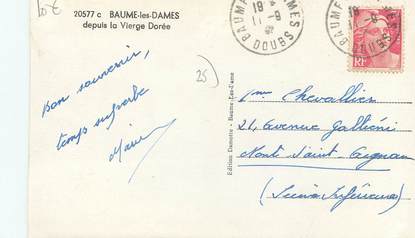 10€
20577 c BAUME-les-DAMES
depuis la Vierge Dorée
BAUME DAMES
18
11-9
DOUBS
18
-9
DOUBS
RF
25
Bon souvenir,
temps superbe
Edition Damotte - Baume-Les-Dames
Mme Chevallier
21, avenue Galliéni
Mont Saint-Aignan
(Seine Inférieure)